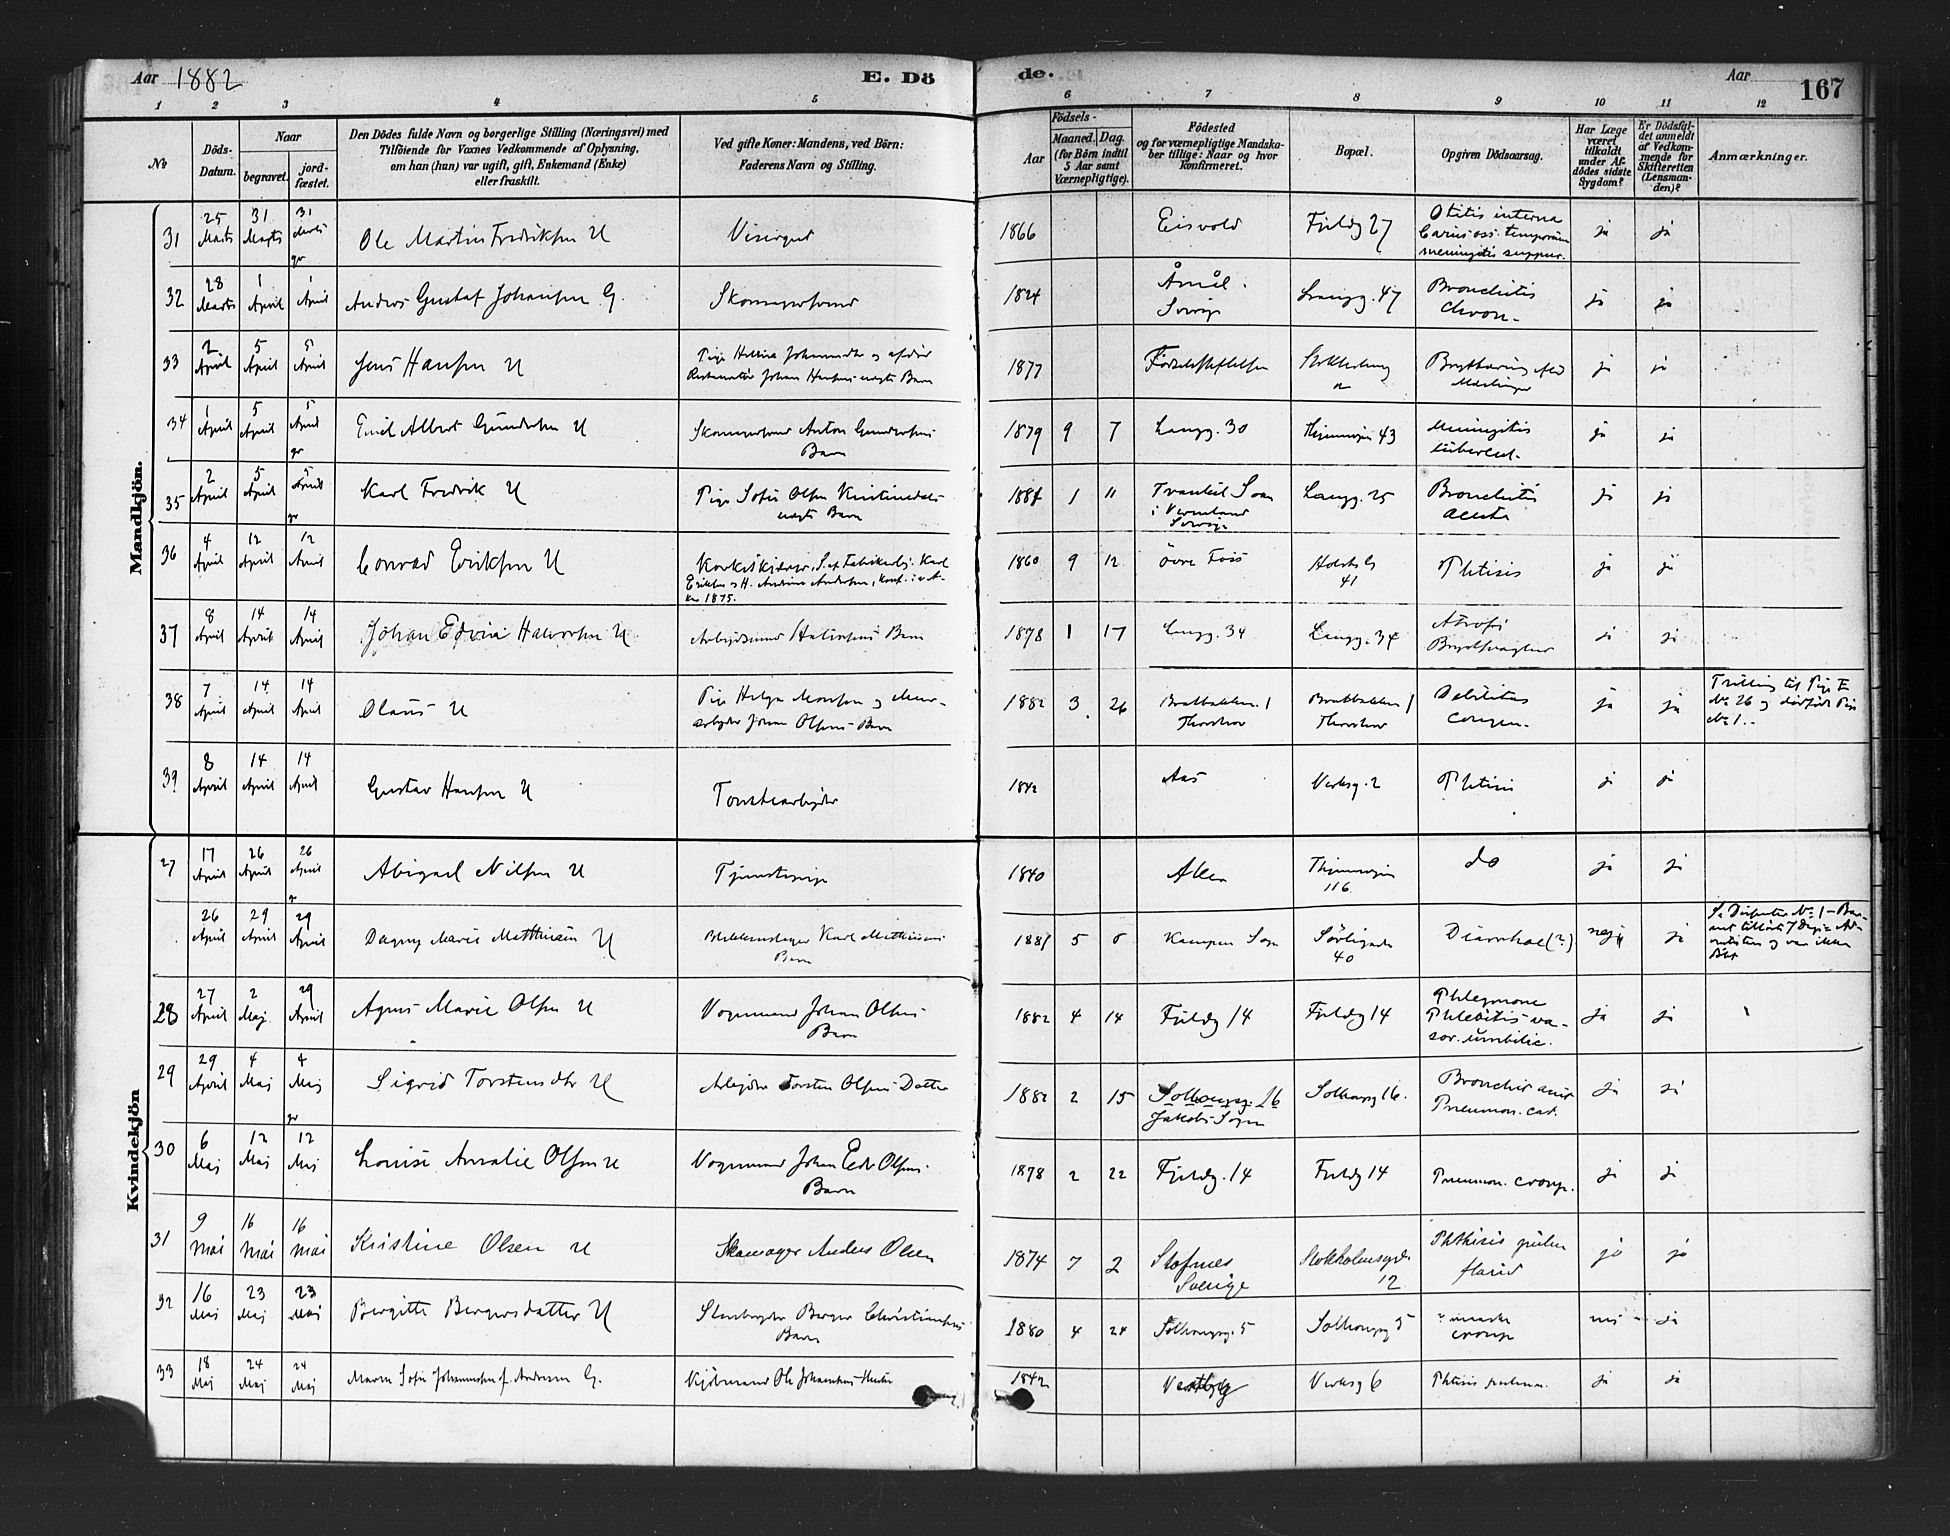 Aar 1882
E. Dö
de.
Aar
167
1 2 3 4 5 6 7 8 9 10 11 12
No
Döds-
Datum.
Naar
begravet.
jord-
fæstet.
Den Dödes fulde Navn og borgerlige Stilling (Næringsvei) med
Tilföiende for Voxnes Vedkommende af Oplysning,
om han (hun) var ugift, gift, Enkemand (Enke)
eller fraskilt.
Ved gifte Koner: Mandens, ved Börn:
Faderens Navn og Stilling.
Födsels-
Aar
Maaned. Dag.
(for Börn indtil
5 Aar samt
Værnepligtige).
Födested
og for værnepligtige Mandska-
ber tillige: Naar og hvor
konfirmeret.
Bopæl.
Opgiven Dödsaarsag.
Har Læge
været
tilkaldt
under Af-
dödes sidste
Sygdom?
Er Dödsfal-
det anmeldt
af Vedkom-
mende for
Skifteretten
(Lensman-
den)?
Anmærkninger.
Mandkjön.
31 25 Marts 31 Marts 31 Marts Ole Martin Fredriksen U Visergut 1866 Eisvold Fjeldg 27 Otitis interna
meningitis suppur. ja ja
32 28 Marts 1 April 1 April Anders Gustaf Johansen G. Skomagersvend 1824 Åmål
Sverige Langg. 47 Bronchitis
chron. ja ja
33 2 April 5 April 5 April Jens Hansen U
Johan Hansens uægte Barn 1877 Fødselsstiftelsen ja ja
34 1 April 5 April 5 April Emil Albert Gundersen U Skomagersvend Anton Gundersens
Barn 1879 9 7 Langg. 30 43 Meningitis
tubercul. ja ja
35 2 April 5 April 5 April Karl Fredrik U Pige Sofie Olsen
uægte Barn 1881 1 11 i Vermland
Sverige Langg. 25 Bronchitis
acuta ja ja
36 4 April 12 April 12 April Conrad Eriksen U Korkeskjærer, S. af Fabrikarb. Karl
Eriksen og H. Andrine Andersen, konf. i
1875. 1860 9 12 Övre Foss Holstsg
41 Phtisis ja ja
37 8 April 14 April 14 April Johan Edvin Halvorsen U Arbejdsmand Halvorsens Barn 1878 1 17 Langg. 34 Langg. 34 Atrofi
ja ja
38 7 April 14 April 14 April Olaus U Pige Helga Monsen og Mur-
arbejder Johan Olsens Barn 1882 3 26 Bratbakken 1
Thorshov Bratbakken 1
Thorshov Debilitas
congen. ja ja Trilling til Pige E
No 26 og dödfödt Pige
No 1.
39 8 April 14 April 14 April Gustav Hansen U Tomtearbejder 1842 Aas Verksg. 2 Phtisis ja ja
Kvindekjön
27 17 April 26 April 26 April Abigael Nilsen U Tjenestepige 1840 Aker
116 do ja ja
26 April 29 April 29 April Dagny Marie Mathisen U Blikkenslager Karl Mathisens
Barn 1881 5 Kampen Sogn
40 Diarrhoe (?) nej ja Se Dissenter No 1 - Bar-
net tilhörte 7 Dags Ad-
ventisten og var ikke
döbt
28 27 April 2 Maj 29 April Agnes Marie Olsen U Vognmand Johan Olsens
Barn 1882 4 14 Fjeldg 14 Fjeldg 14 Phlegmone
Phlebitis va-
sor. umbilic. ja ja
29 29 April 4 Maj 4 Maj Sigrid Torstensdtr U Arbejder Torsten Olsens Datter 1882 2 15 Solhougsg. 16
Jakobs Sogn Solhougsg 16. Bronchit
Pneumon. cat. ja ja
30 6 Maj 12 Maj 12 Maj Lovise Amalie Olsen U Vognmand Johan Edv. Olsens
Barn 1878 2 22 Fjeldg. 14 Fjeldg 14 Pneumon. croup. ja ja
31 9 Mai 16 Mai 16 Mai Kristine Olsen U Skomager Anders Olsen 1874 7 2 Stafnes
Sverige Stokholmsgade
12 Phthisis pulm
florid ja ja
32 16 Maj 23 Maj 23 Maj Bergitte Bergersdatter U Stenhugger Berger Christiansens
Barn 1880 4 24 Solhougsg. 5 Solhougsg 5
croup nej ja
33 18 Maj 24 Maj 24 Maj Maren Sofie Johannesen f. Andersen G. Kjöbmand Ole Johannesens Hustru 1842 Vestby Verksg 6 Phtisis pulmon. ja ja